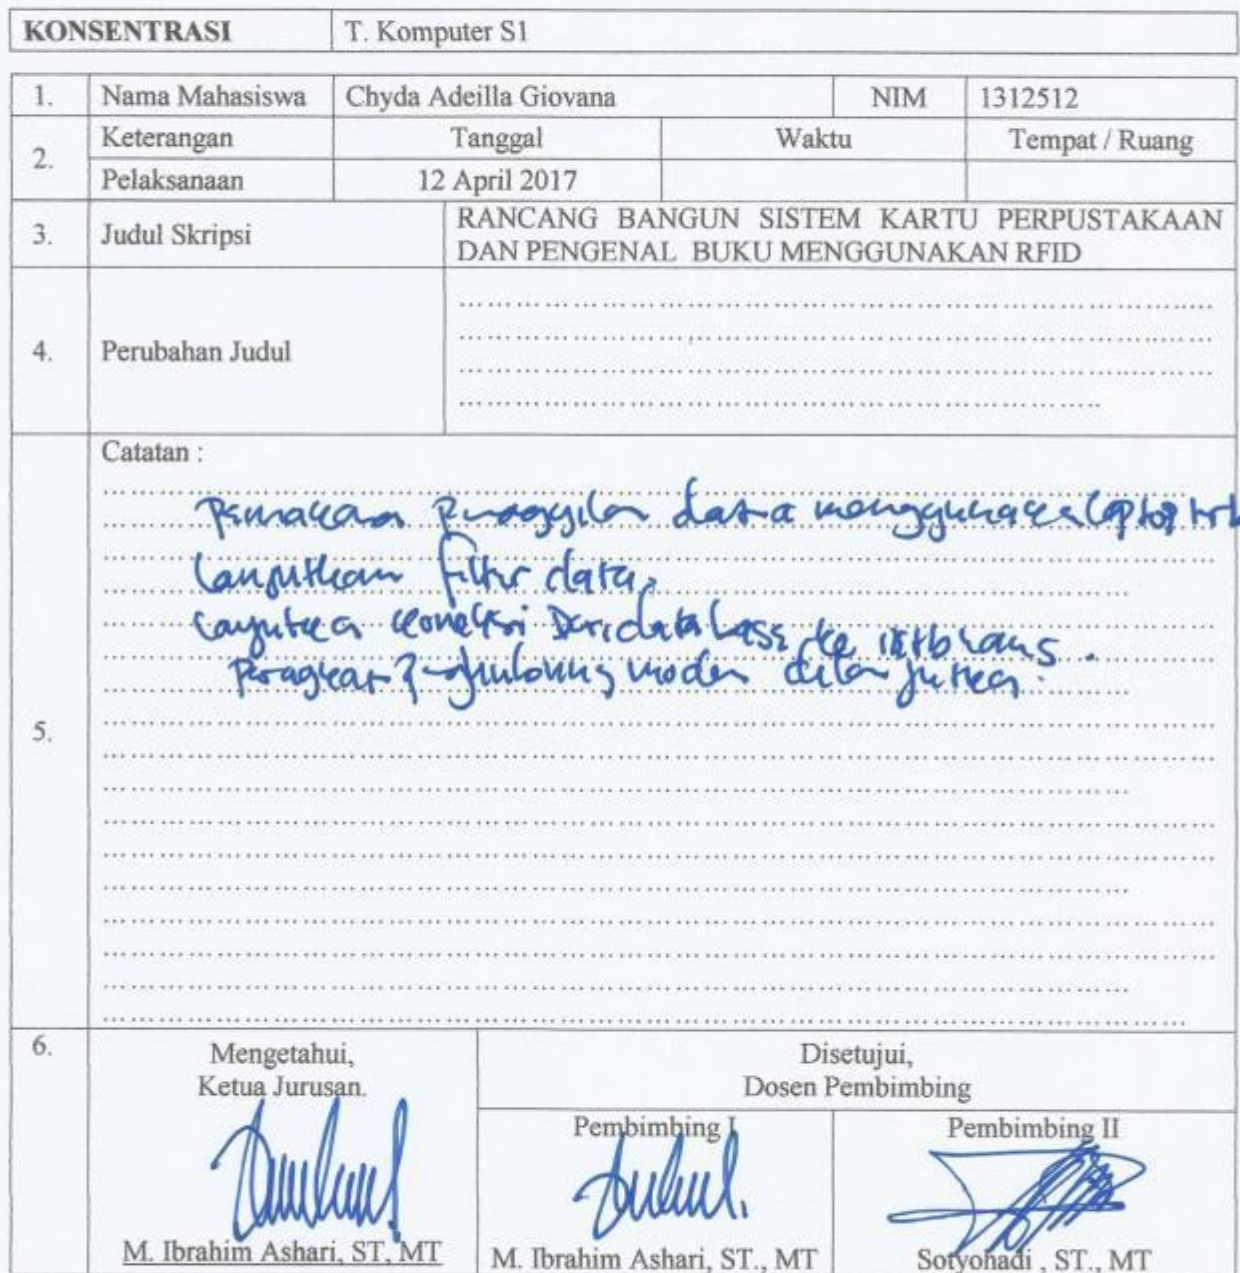 KONSENTRASI T. Komputer S1
1. Nama Mahasiswa Chyda Adeilla Giovana NIM 1312512
2. Keterangan Tanggal Waktu Tempat / Ruang
Pelaksanaan 12 April 2017
3. Judul Skripsi RANCANG BANGUN SISTEM KARTU PERPUSTAKAAN
DAN PENGENAL BUKU MENGGUNAKAN RFID
4. Perubahan Judul
5. Catatan :
data menggunakan laptop
Lanjutkan filter data,
koneksi Dari database ke
6. Mengetahui,
Ketua Jurusan.
M. Ibrahim Ashari, ST, MT
Disetujui,
Dosen Pembimbing
Pembimbing I
M. Ibrahim Ashari, ST., MT
Pembimbing II
Sotyohadi , ST., MT